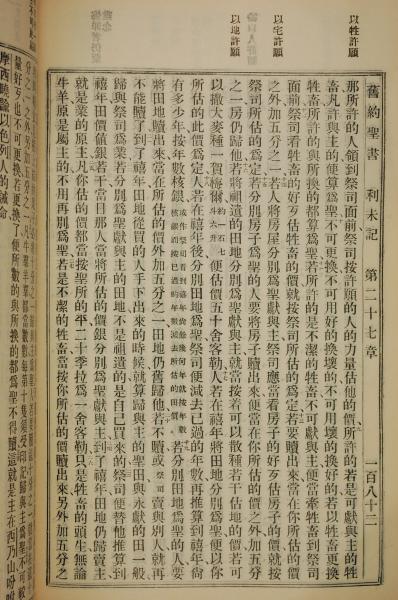 以牲許願
以宅許願
以地許願
舊約聖書 利未記 第二十七章 一百八十二
那所許的人領到祭司面前祭司按許願的人的力量估他的價所許的若是可獻與主的牲
畜凡許與主的便算爲聖不可更換不可用好的換壞的不可用壞的換好的若以牲畜更換
牲畜所許的與所換的都算爲聖若所許的是不潔的牲畜不可獻與主便當牽牲畜到祭司
面前祭司看牲畜的好歹估牲畜的價就按祭司所估的爲定若要贖出來當在你所估的價
之外加五分之一若人將房屋分別爲聖獻與主祭司應當看房子的好歹估房子的價就按
祭司所估的爲定將房子分別爲聖的人要將房子贖出來便當在你所估的價之外加五分
之一房仍歸他若將祖遺的田地分別爲聖獻與主就當按着可以散種若干估地的價若可
以撒大麥種一賀梅爾便估價五十舍客勒人若在禧年將田地分別爲聖便以你
所估的此價爲定人若在禧年後分別田地爲聖祭司便減去已過的年數再推算到禧年尚
有多少年按年數核銀若分別田地爲聖的人要
將田地贖出來當在所估的價外加五分之一田地仍舊歸他若不贖或祭司賣與別人就再
不能贖了到了禧年田地從買的人手下出來的時候就算歸與主的聖田與永獻的田一般
歸與祭司爲業若分別爲聖獻與主的田地不是祖遺的是自己買來的祭司便替他推算到
禧年田價值銀若干當日那人當將所估的價銀分別爲聖獻與主到了禧年田地仍歸賣主
就是業的原主凡你估的價都當按聖所的平二十季拉爲一舍客勒只是牲畜的頭生無論
牛羊原是屬主的不用再別爲聖若是不潔的牲畜當按你所估的價贖出來另外加五分之